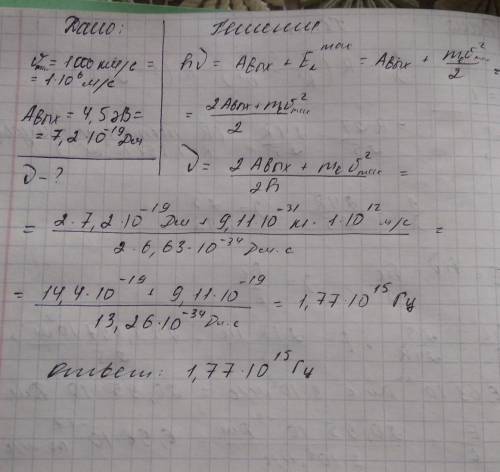 Дано:
υmax = 1000 км/с =
= 1·10⁶ м/с
Aвых = 4,5 эВ =
= 7,2·10⁻¹⁹ Дж
ν - ?
Решение
hν = Aвых + Eₖ^max = Aвых + mₑυ²max/2 =
= (2Aвых + mₑυ²max)/2
ν = (2Aвых + mₑυ²max)/2h =
= (2·7,2·10⁻¹⁹ Дж + 9,11·10⁻³¹ кг·1·10¹² м/с)/(2·6,63·10⁻³⁴ Дж·с) =
= (14,4·10⁻¹⁹ + 9,11·10⁻¹⁹)/(13,26·10⁻³⁴ Дж·с) = 1,77·10¹⁵ Гц
ответ: 1,77·10¹⁵ Гц